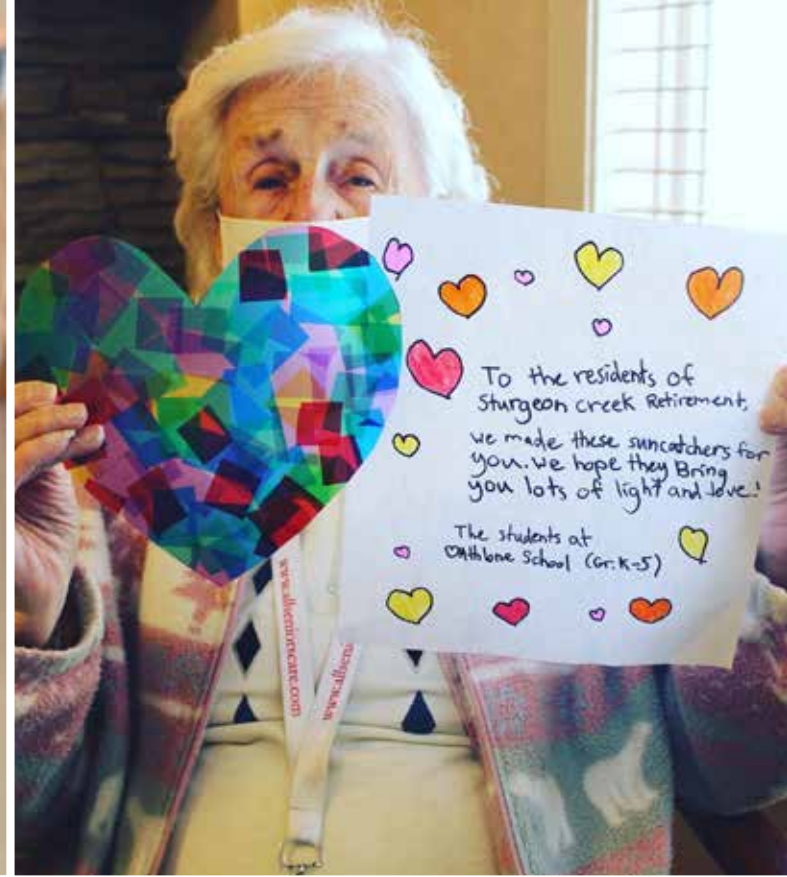 To the residents of
Sturgeon creek Retirement,
we made these suncatchers for
you. We hope they Bring
you lots of light and love!
The students at
Athlone School (Gr. K-5)
www.allseniorscare.com
www.allsenio